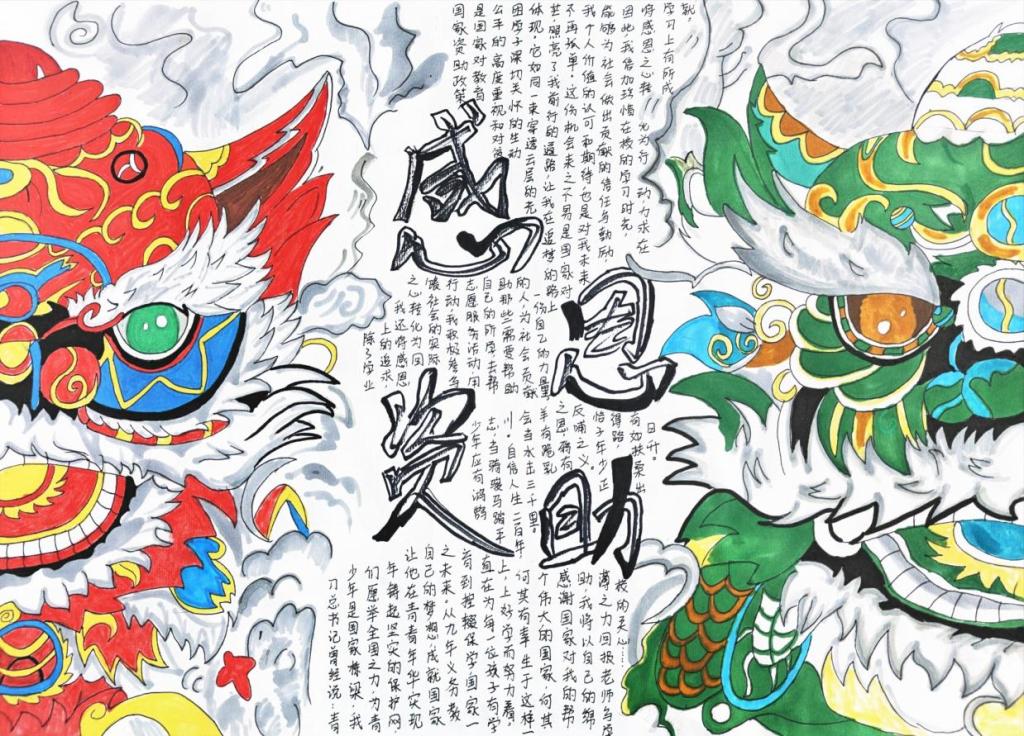 感恩资助
国家资助政策
是国家对教育
公平的高度重视和对贫
困学子深切关怀的生动
体现,它如同一束穿透云层的光
芒,照亮了我前行的道路,让我在追梦的路上
不再孤单。这份机会来之不易是国家对
我个人价值的认可和期待,也是对我未来
能够为社会做出贡献的信任与勉励,
因此,我倍加珍惜在校的学习时光,
将感恩之心转化为行动力求在
学习上有所成
就。
除了学业
上的追求,
我还将感恩
之心转化为回
馈社会的实际
行动,我积极参与
志愿服务活动用
自己的所学去帮
助那些需要帮助
的人,为社会贡献
一份自己的力量。
少年应有鸿鹄
志,当骑骏马踏平
川。自信人生二百年,
会当水击三千里。
羊有跪乳
之恩,鸦有
反哺之义。
恰子年少正
得路,
有如扶桑出
日升。
习总书记曾经说:青
少年是国家栋梁,我
们愿举全国之力,为青
年铸起坚实的保护网,
让他在青青年华实现
自己的梦想,成就国家
之未来,从九年义务教
育到控辍保学国家一
直在为每一位孩子有学
上,上好学而努力着。
何其有幸生于这样一
个伟大的国家,何其
感谢国家对我的帮
助,我将以自己的绵
薄之力回报老师与学
校的关心……